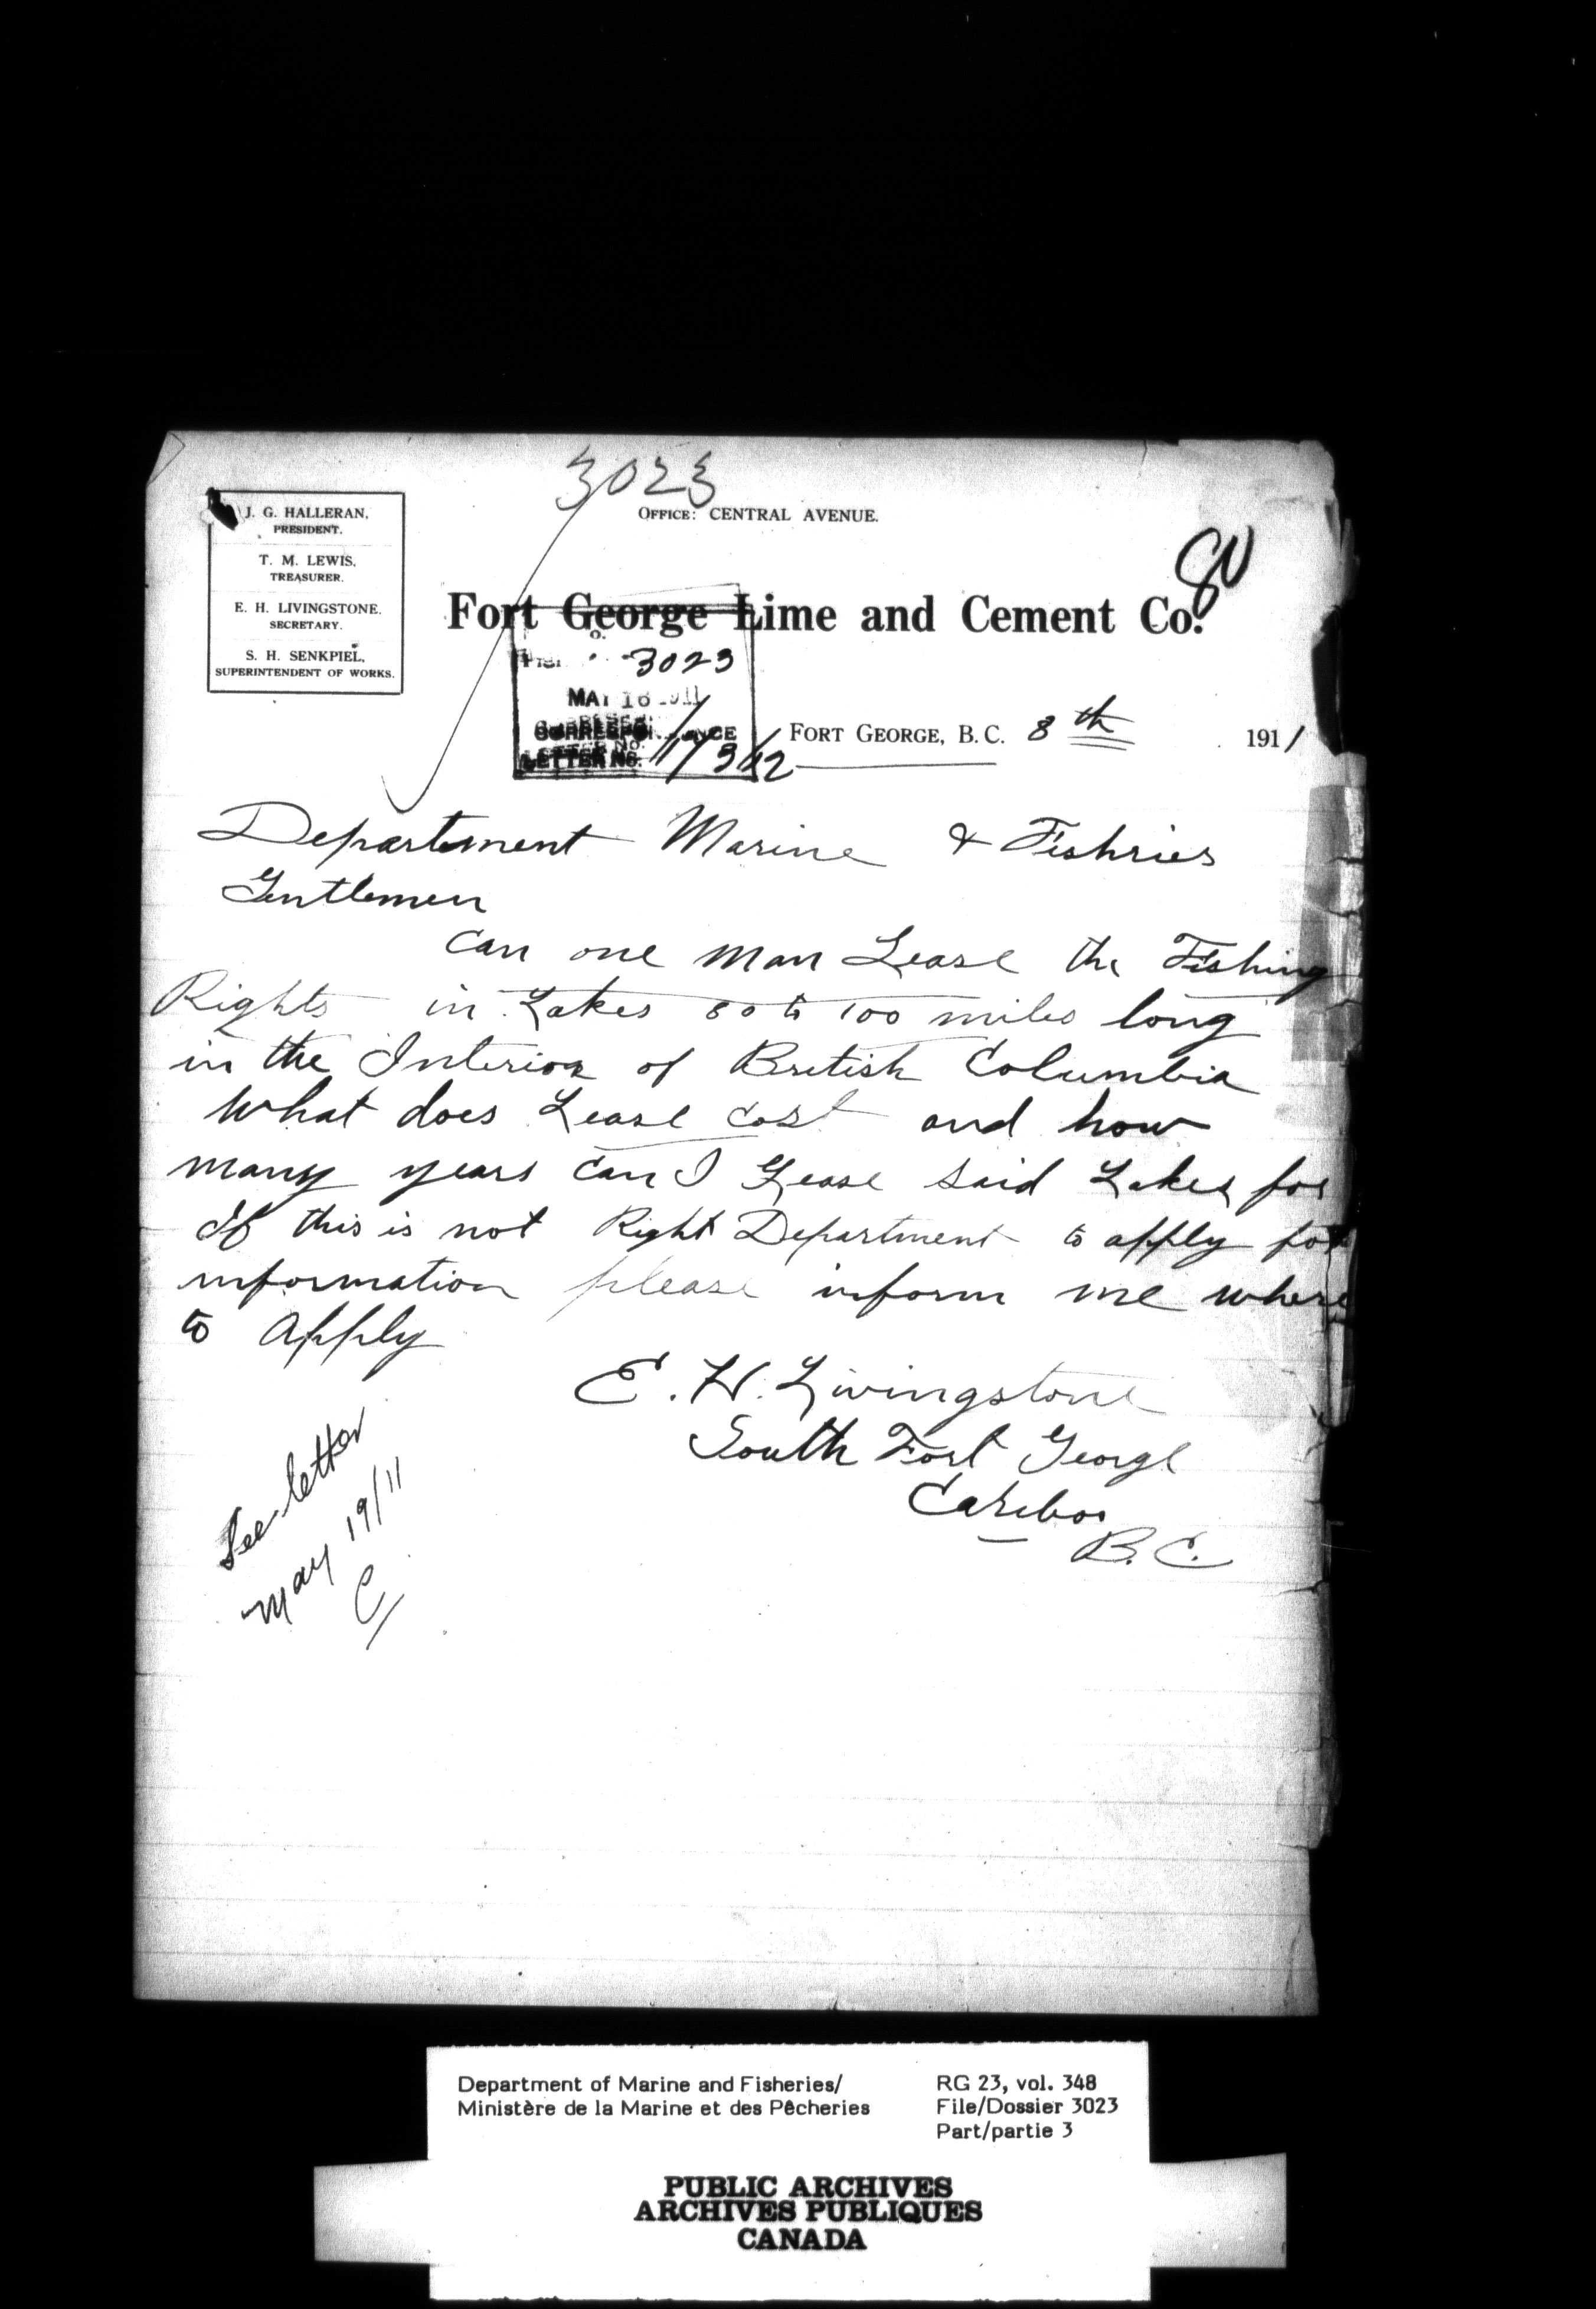 3023
OFFICE: CENTRAL AVENUE.
J. G. HALLERAN,
PRESIDENT.
T. M. LEWIS,
TREASURER.
E. H. LIVINGSTONE.
SECRETARY.
S. H. SENKPIEL,
SUPERINTENDENT OF WORKS.
80
Fort George Lime and Cement Co.
3023
MAY 16 1911
CORRESPONDENCE
LETTER No.
FORT GEORGE, B.C. 8th 1911
Department Marine & Fishries
Gentlemen
Can one man Lease the Fishing
Rights in Lakes 80 to 100 miles long
in the Interior of British Columbia
What does Lease Cost and how
many years Can I Lease Said Lakes for
If this is not Right Department to apply for
information please inform me where
to Apply
E. H. Livingstone
South Fort George
Cariboo
B.C.
See letter
May 19/11
C/
Department of Marine and Fisheries/
Ministère de la Marine et des Pêcheries
RG 23, vol. 348
File/Dossier 3023
Part/partie 3
PUBLIC ARCHIVES
ARCHIVES PUBLIQUES
CANADA